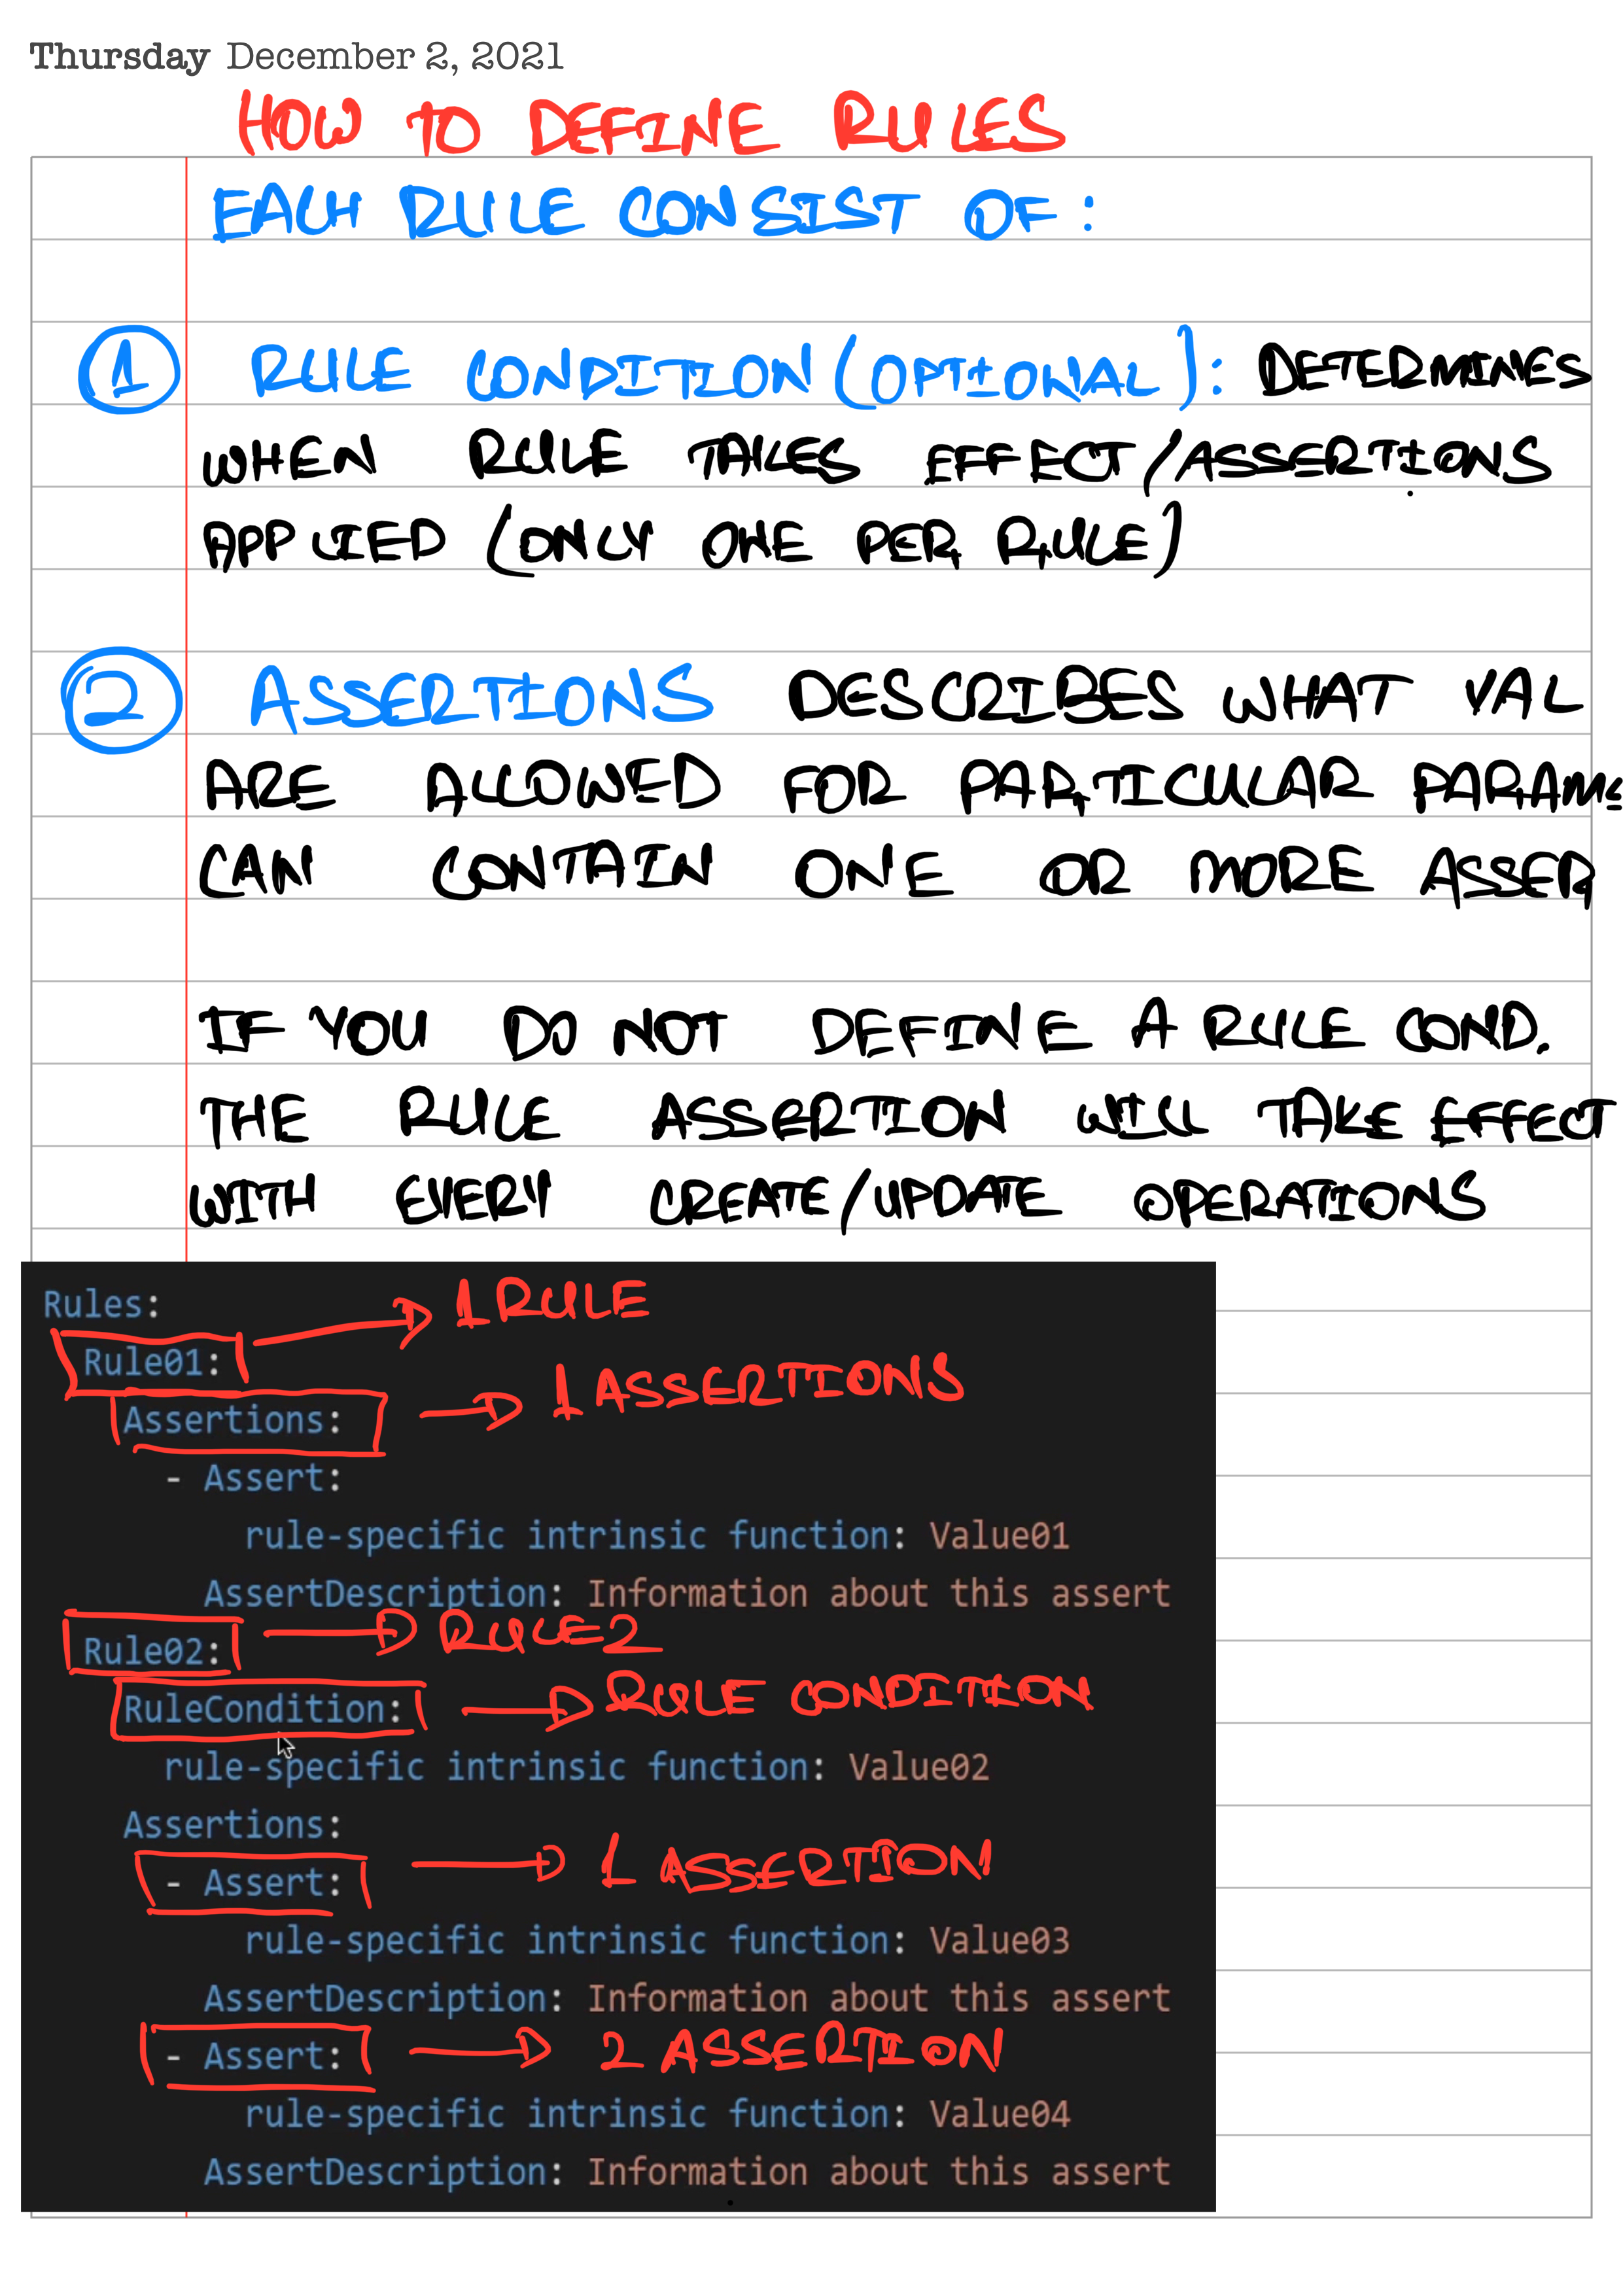 Thursday December 2, 2021
HOW TO DEFINE RULES
EACH RULE CONSIST OF:
1 RULE CONDITION (OPTIONAL): DETERMINES
WHEN RULE TAKES EFFECT/ASSERTIONS
APPLIED (ONLY ONE PER RULE)
2 ASSERTIONS DESCRIBES WHAT VAL
ARE ALLOWED FOR PARTICULAR PARAMS
CAN CONTAIN ONE OR MORE ASSER
IF YOU DO NOT DEFINE A RULE COND.
THE RULE ASSERTION WILL TAKE EFFECT
WITH EVERY CREATE/UPDATE OPERATIONS
Rules:
1 RULE
Rule01:
1 ASSERTIONS
Assertions:
- Assert:
rule-specific intrinsic function: Value01
AssertDescription: Information about this assert
Rule02: RULE2
RuleCondition: RULE CONDITION
rule-specific intrinsic function: Value02
Assertions:
- Assert: 1 ASSERTION
rule-specific intrinsic function: Value03
AssertDescription: Information about this assert
- Assert: 2 ASSERTION
rule-specific intrinsic function: Value04
AssertDescription: Information about this assert